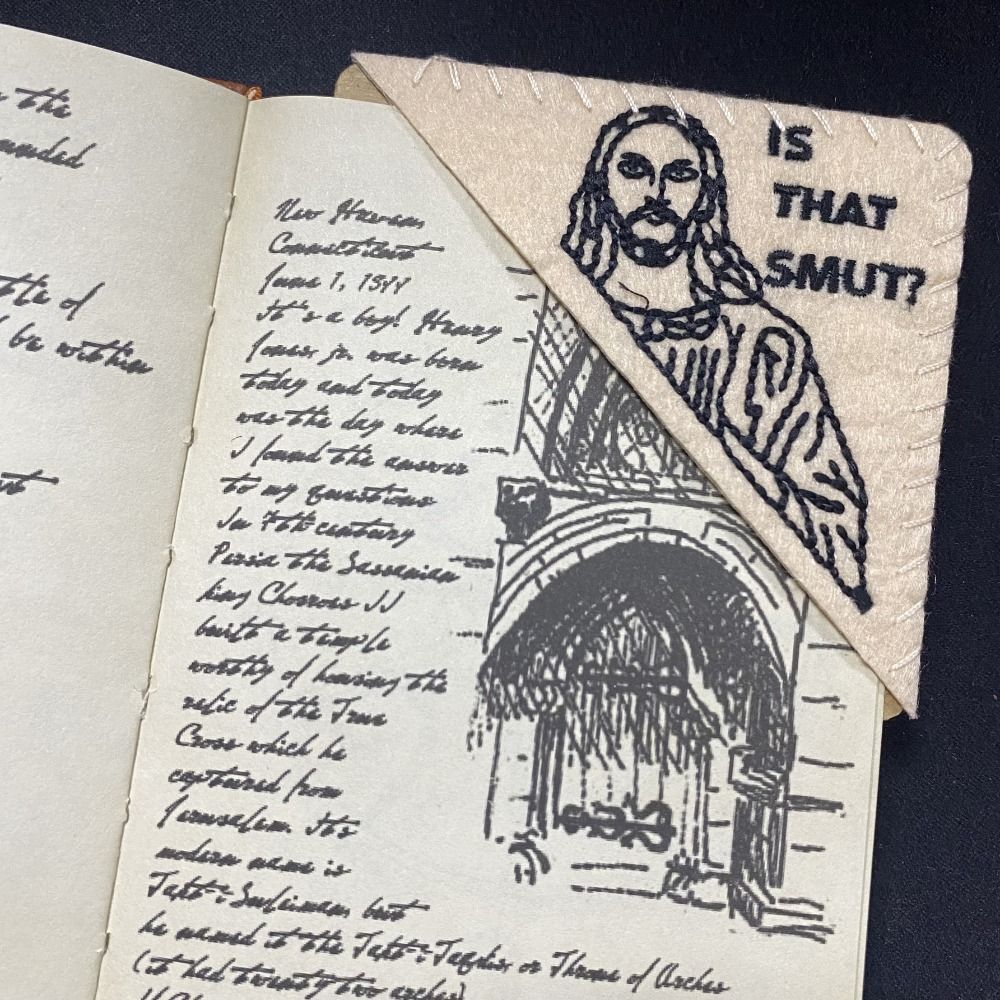 the
unded
ble of
be within
New Haven,
Connecticut
June 1, 1912
It's a boy! Henry
Jones, jr. was born
today and today
was the day where
I found the answer
to my questions
In 7th century
Persia the Sassanian
king Chosroes II
built a temple
worthy of housing the
relic of the True
Cross which he
captured from
Jerusalem. Its
modern name is
Takt-i-Suleiman, but
he named it the Takt-i-Taqdis, or Throne of Arches
(it had twenty two arches)
IS
THAT
SMUT?